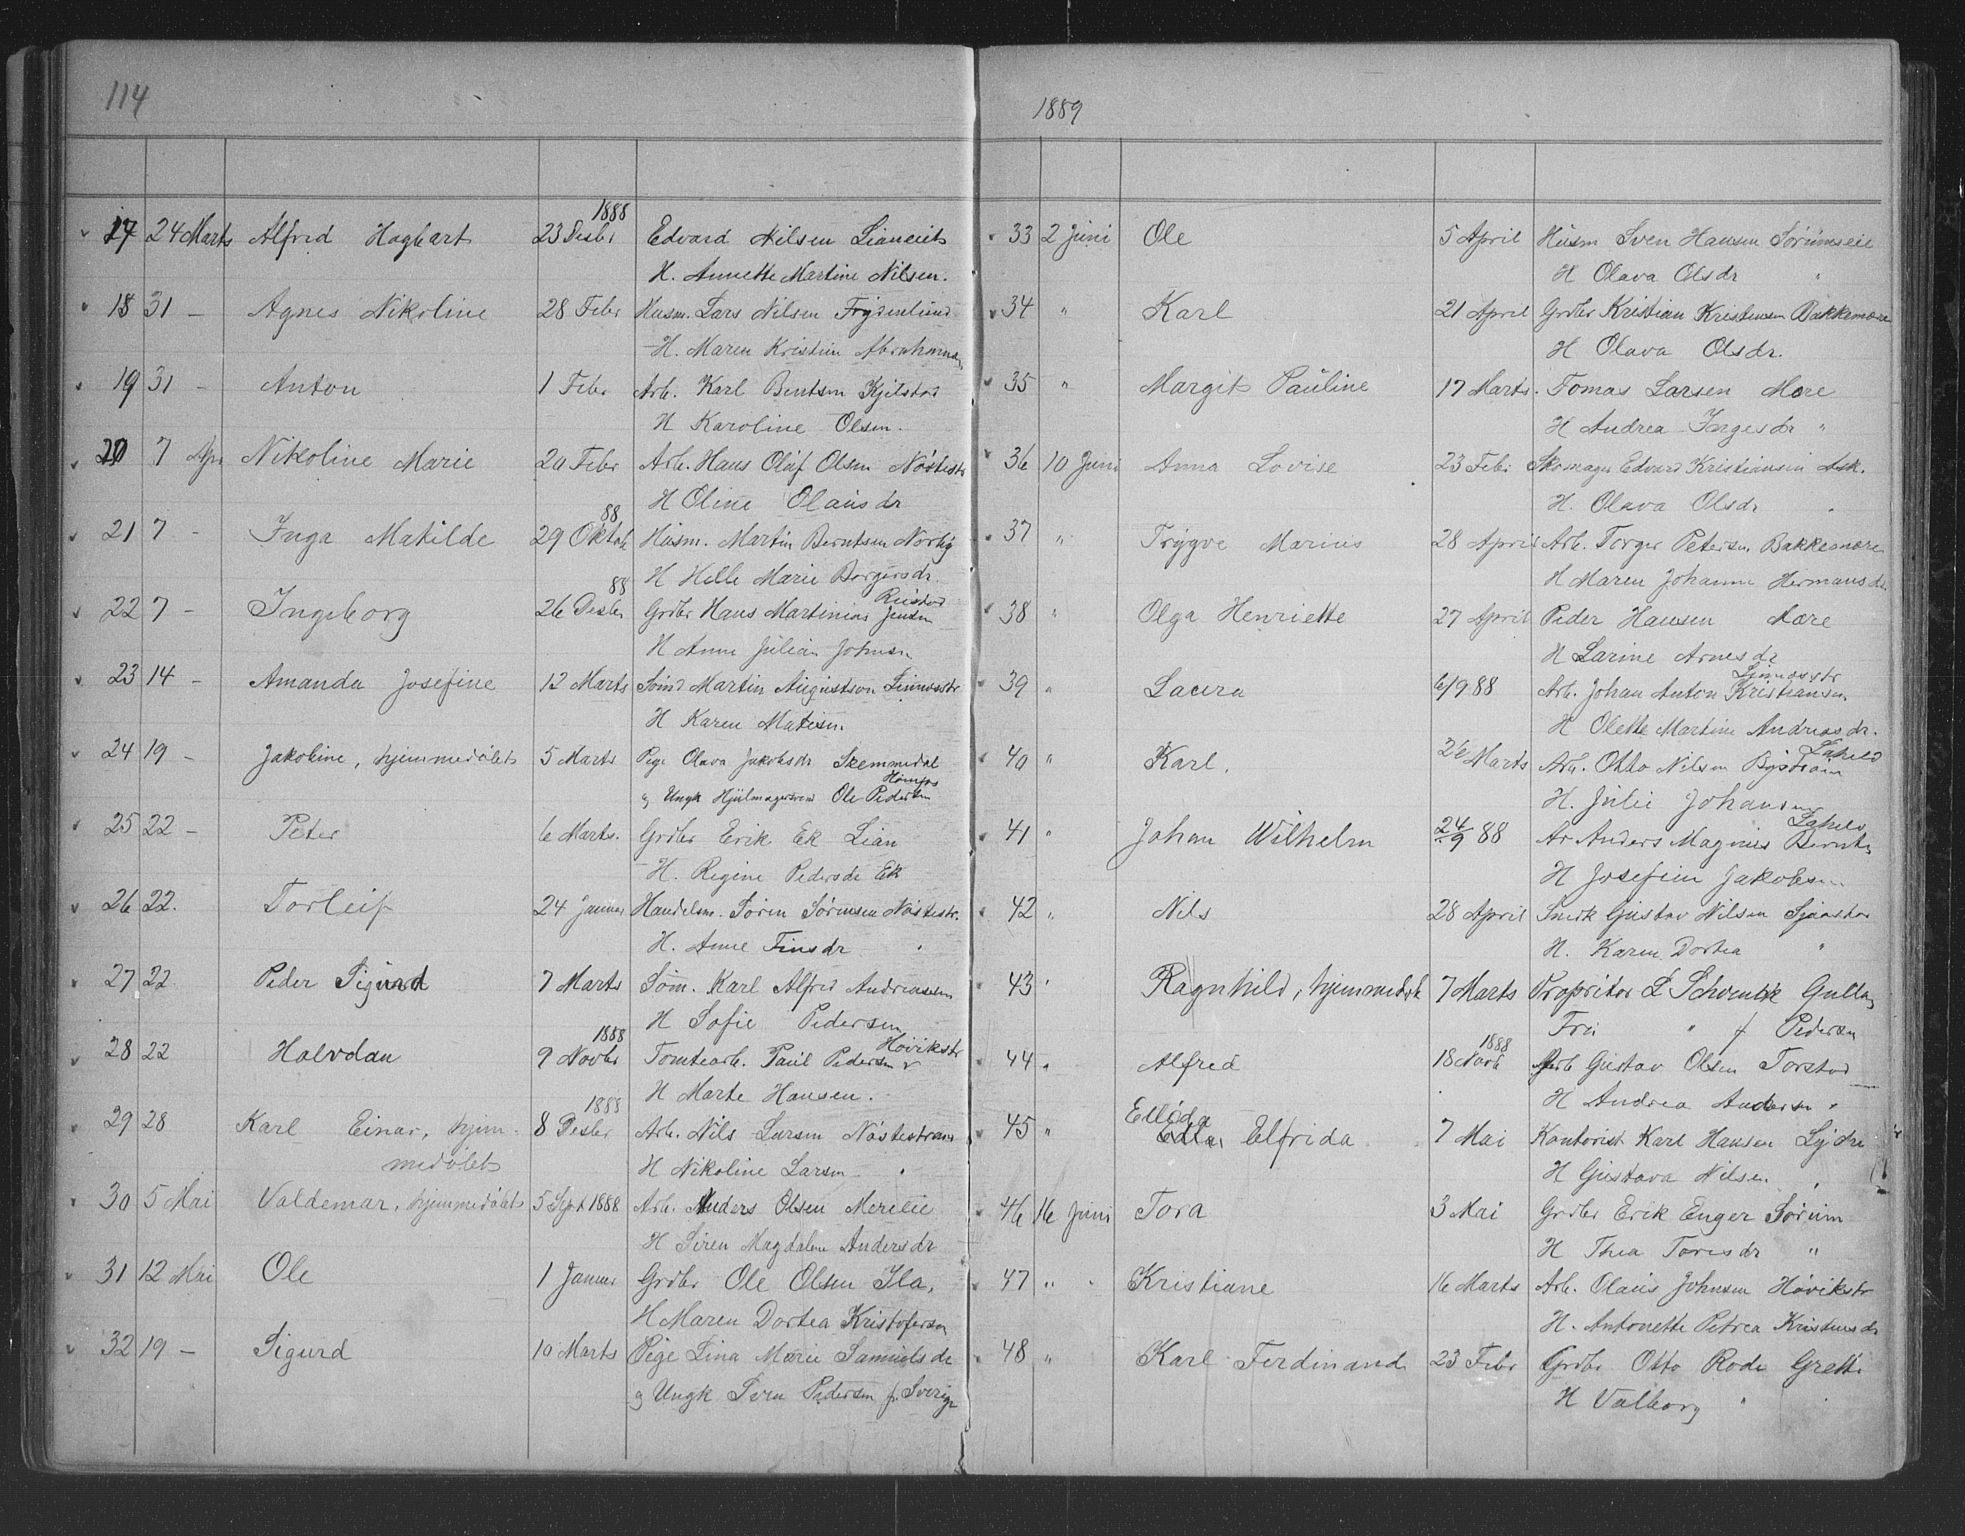 114
1888
17 24 Marts Alfred Hagbart 23 Desbr Edvard Nilsen Lianeiet
H. Annette Martine Nilsen.
18 31 - Agnes Nikoline 28 Febr Husm. Lars Nilsen Frydenlund
H. Maren Kristin
19 31 - Anton 1 Febr Arb. Karl Berntsen Kjelstad
H Karoline Olsen.
20 7 Apr Nikoline Marie 20 Febr Arb. Hans Olaf Olsen Nøstestr
H Oline Olausdr
88
21 7 - Inga Matilde 29 Oktob Husm. Martin Berntsen Norby
H Helle Marie Borgersdr.
88 Reistad
22 7 - Ingeborg 26 Desbr Grdbr Hans Martinius Jensen
H Anne Julian Johnsen
23 14 - Amanda Josefine 12 Marts Sømd Martin Augustson
H Karen Matisen.
24 19 - Jakobine, hjemmedøbt 5 Marts Pige Olava Jakobsdr Skemmedal
og Ungk Hjulmagersvend Ole Pedersen
25 22 - Peter 6 Marts. Grdbr Erik Ek Lian
H. Regine Pedersdr Ek
26 22. Torleif 24 Januar Handelsm. Søren Sørensen Nøstestr.
H. Anne Finsdr "
27 22 Peder Sigurd 7 Marts Søm. Karl Alfred Andreassen
H Sofie Pedersen
1888 Høvikstr
28 22 Halvdan 9 Novbr Tomtearb. Paul Pedersen
H Marte Hansen.
1888
29 28 Karl Einar, hjem- 8 Desbr Arb. Nils Larsen Nøstestrand
medøbt H Nikoline Larsen "
30 5 Mai Valdemar, hjemmedøbt 5 Sept 1888 Arb. Anders Olsen Mereie
H Siren Magdalene Andersdr
31 12 Mai Ole 1 Januar Grdbr Ole Olsen Ila,
H Maren Dortea Kristofersen
32 19 - Sigurd 10 Marts Pige Lina Marie Samuelsdr
og Ungk Sven Pedersen fr Sverige
1889
33 2 Juni Ole 5 April Husm Sven Hansen Sørumseie
H Olava Olsdr "
34 " Karl 21 April Grdbr Kristian Kristensen Bakkemøre
H Olava Olsdr.
35 " Margit Pauline 17 Marts. Tomas Larsen Møre
H Andrea Ingesdr "
36 10 Juni Anna Lovise 23 Febr Skomager Edvard Kristiansen Ask.
H. Olava Olsdr "
37 " Trygve Marius 28 April Arb. Torger Petersen Bakkemøre
H Maren Johanne Hermansdr
38 " Olga Henriette 27 April Peder Hansen Møre
H Larine Arnesdr
39 " Laura 6/9 88 Arb. Johan Anton Kristiansen
H Olette Martine Andreasdr.
Lahell
40 " Karl. 26 Marts Arb. Otto Nilsen Bystrøm
H. Julie Johansen
Lahell
41 " Johan Wilhelm 24/9 88 Ar Anders Magnus Berntsn
H Josefin Jakobsen
42 " Nils 28 April Snedk Gustav Nilsen Sjaastad
H. Karen Dortea "
43 " Ragnhild, hjemmedøbt 7 Marts Propritær L Schwenk Gullaug
Fru " f Pedersen
1888
44 " Alfred 18 Novb Arb Gustav Olsen Torstad
H Andrea Andersen "
Ellida
45 " Elfrida 7 Mai Kontorist Karl Hansen
H Gustava Nilsen "
46 16 Juni Tora 3 Mai Grdbr Erik Enger Sørum
H Thea Toresdr "
47 " " Kristiane 16 Marts Arb. Olaus Johnsen Høvikstr
H. Antonette Petrea Kristensdr
48 " Karl Ferdinand 23 Febr Grdbr Otto Rode Grette
H Valborg "